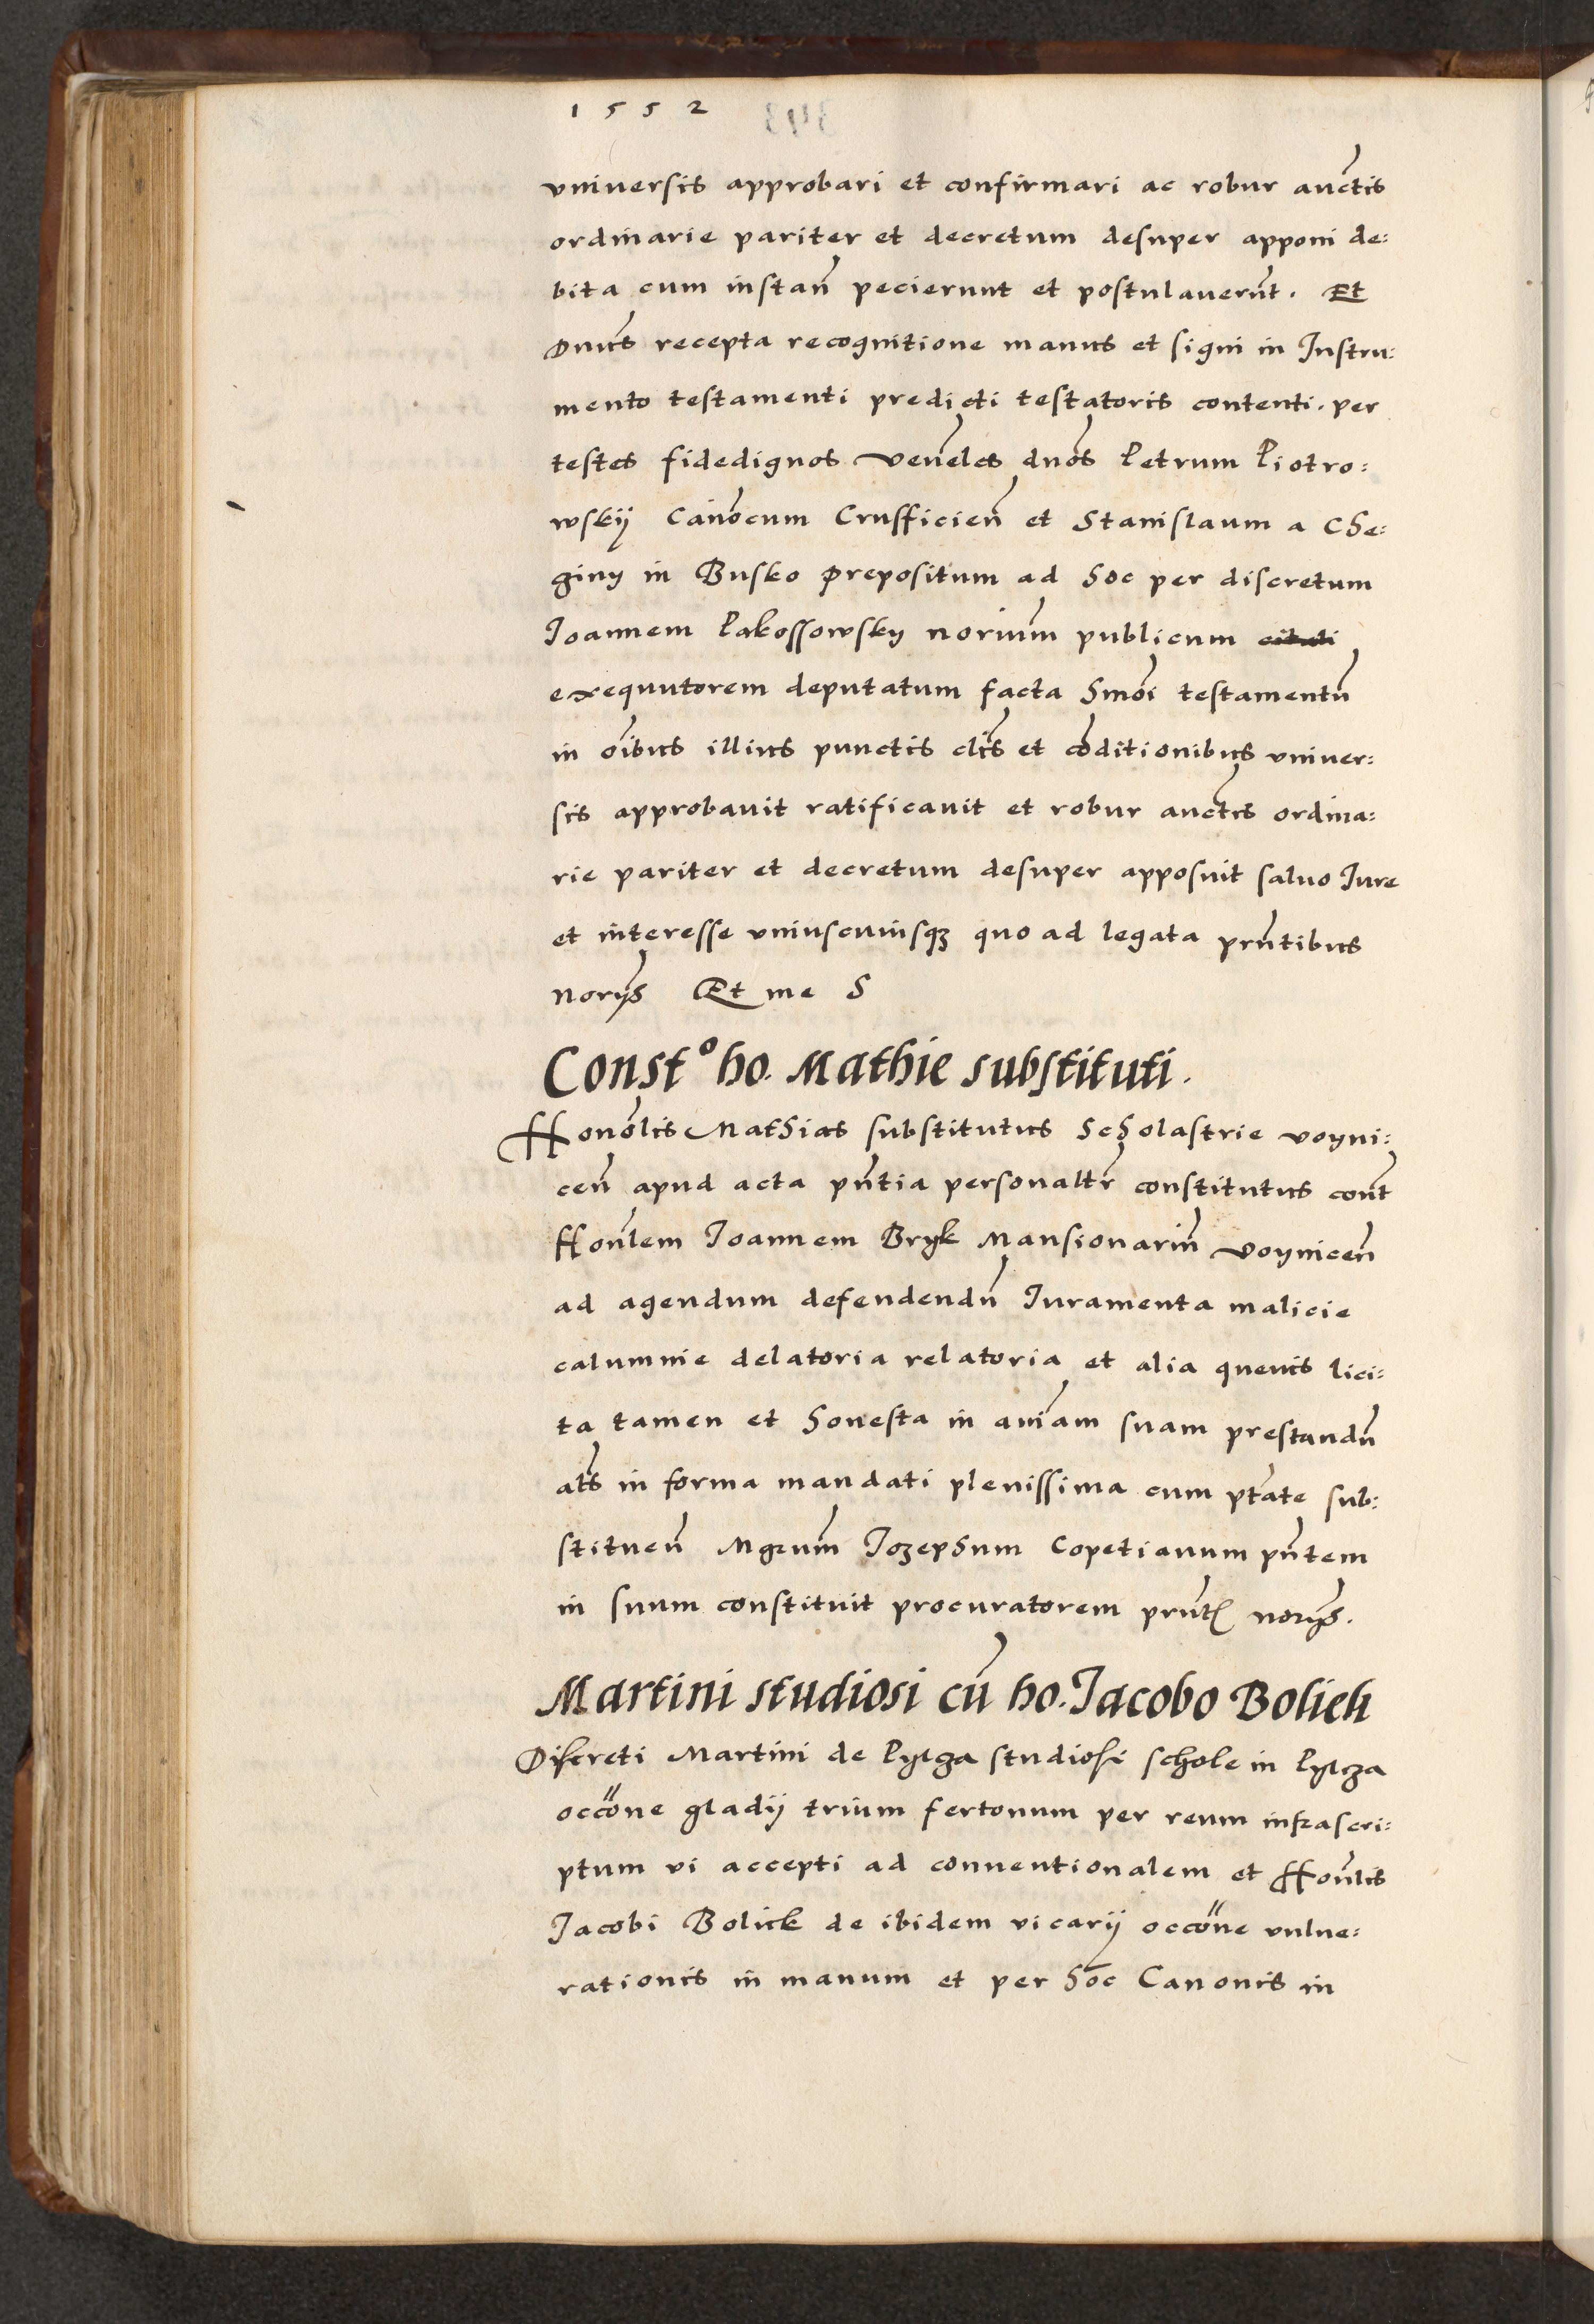 1552
universis approbari et confirmari ac robur auctis
ordinarie pariter et decretum desuper apponi de:
bita cum instan̄ pecierunt et postulaverūt. Et
Dnus recepta recognitione manus et signi in Instru:
mento testamenti predicti testatoris contenti. per
testes fidedignos veneles dnos Petrum Piotro:
wskij Canocum Crusficien̄ et Stanislaum a Che:
giny in Busko prepositum ad hoc per discretum
Joannem Pakossowsky norium publicum
exequutorem deputatum facta hmoi testamentū
in oībus illius punctis clis et cōditionibus univer:
sis approbavit ratificavit et robur auctis ordina:
rie pariter et decretum desuper apposuit salvo Jure
et interesse uniuscuiusqꝫ quo ad legata prntibus
norijs Et me S
Constº ho. Mathie substituti.
Honolis Mathias substitutus Scholastrie voyni:
cen̄ apud acta pn̄tia personaltr constitutus cont
Honlem Joannem Bryk Mansionariū voynicen̄
ad agendum defendendū Juramenta malicie
calumnie delatoria relatoria et alia quevis lici:
ta tamen et honesta in aniam suam prestandū
als in forma mandati plenissima cum ptate sub:
stituen̄ Mgrum Jozephum Copetianum pn̄tem
in suum constituit procuratorem prnt norijs.
Martini studiosi cū ho. Jacobo Bolick
Discreti Martini de Pylza studiosi schole in Pylcza
occōne gladij trium fertonum per reum infrascri:
ptum vi accepti ad conventionalem et Honlis
Jacobi Bolick de ibidem vicarij occōne vulne:
rationis in manum et per hoc Canonis in